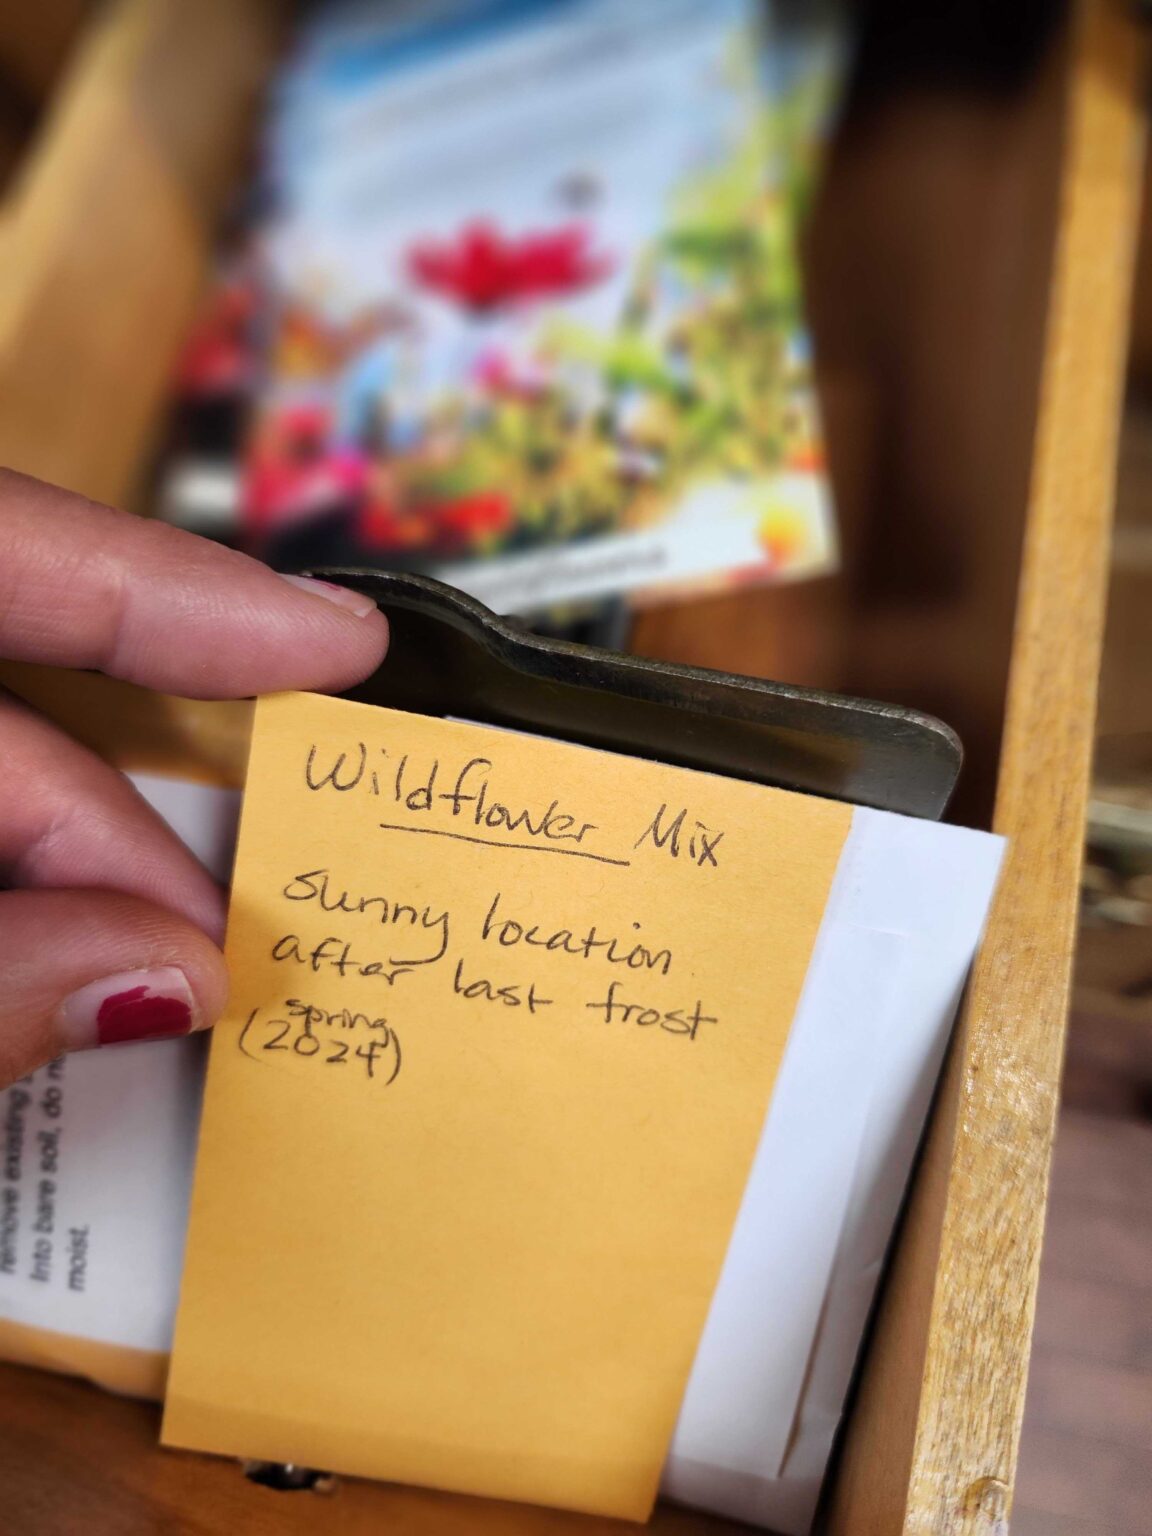 Wildflower Mix
sunny location
after last frost
spring
(2024)
remove existing
into bare soil, do n
moist.